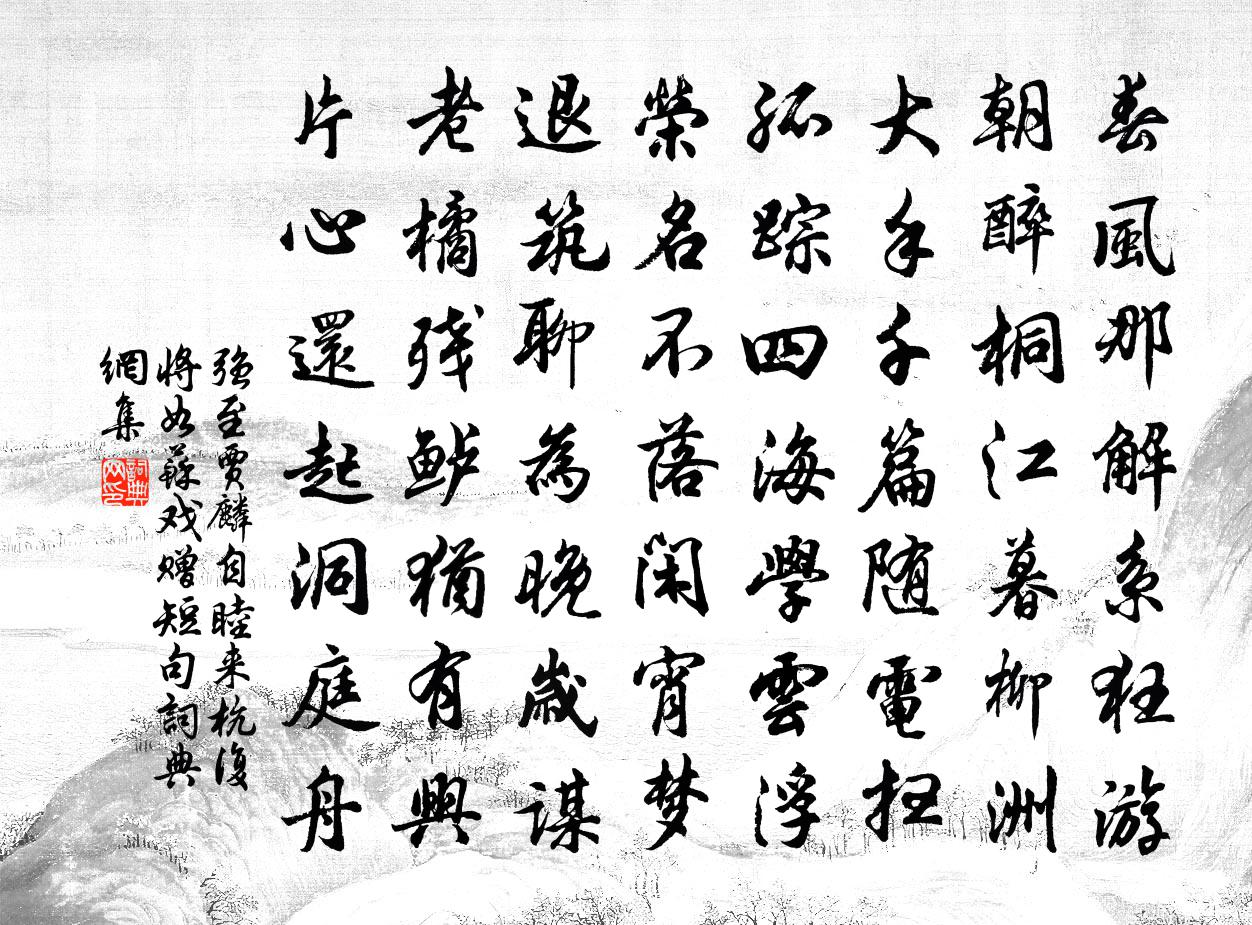 春風那解系狂游
朝醉桐江暮柳洲
大手千篇随電扫
孤踪四海學雲浮
榮名不落闲宵梦
退筑聊為晚歲謀
老橘残鲈猶有興
片心還起洞庭舟
强至賈麟自睦来杭復
將如蘇戏贈短句詞典
網集
詞典
网印